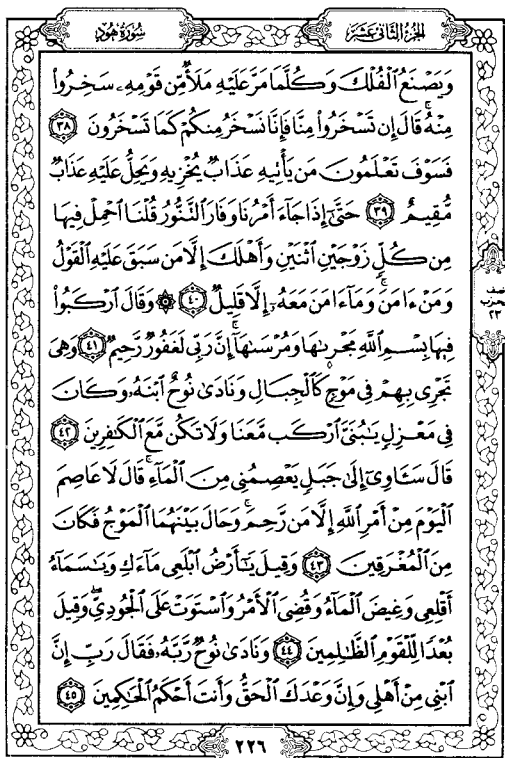 سُورَةُ هُودٍ
الجُزْءُ الثَّانِي عَشَرَ
وَيَصْنَعُ ٱلْفُلْكَ وَكُلَّمَا مَرَّ عَلَيْهِ مَلَأٌ مِّن قَوْمِهِۦ سَخِرُواْ
مِنْهُۚ قَالَ إِن تَسْخَرُواْ مِنَّا فَإِنَّا نَسْخَرُ مِنكُمْ كَمَا تَسْخَرُونَ ٣٨
فَسَوْفَ تَعْلَمُونَ مَن يَأْتِيهِ عَذَابٌ يُخْزِيهِ وَيَحِلُّ عَلَيْهِ عَذَابٌ
مُّقِيمٌ ٣٩ حَتَّىٰٓ إِذَا جَآءَ أَمْرُنَا وَفَارَ ٱلتَّنُّورُ قُلْنَا ٱحْمِلْ فِيهَا
مِن كُلٍّ زَوْجَيْنِ ٱثْنَيْنِ وَأَهْلَكَ إِلَّا مَن سَبَقَ عَلَيْهِ ٱلْقَوْلُ
وَمَنْ ءَامَنَۚ وَمَآ ءَامَنَ مَعَهُۥٓ إِلَّا قَلِيلٌ ٤٠ ۞ وَقَالَ ٱرْكَبُواْ
فِيهَا بِسْمِ ٱللَّهِ مَجْر۪ىٰهَا وَمُرْسَىٰهَآۚ إِنَّ رَبِّي لَغَفُورٌ رَّحِيمٌ ٤١ وَهِيَ
تَجْرِي بِهِمْ فِي مَوْجٍ كَٱلْجِبَالِ وَنَادَىٰ نُوحٌ ٱبْنَهُۥ وَكَانَ
فِي مَعْزِلٍ يَٰبُنَيَّ ٱرْكَب مَّعَنَا وَلَا تَكُن مَّعَ ٱلْكَٰفِرِينَ ٤٢
قَالَ سَـَٔاوِيٓ إِلَىٰ جَبَلٍ يَعْصِمُنِي مِنَ ٱلْمَآءِۚ قَالَ لَا عَاصِمَ
ٱلْيَوْمَ مِنْ أَمْرِ ٱللَّهِ إِلَّا مَن رَّحِمَۚ وَحَالَ بَيْنَهُمَا ٱلْمَوْجُ فَكَانَ
مِنَ ٱلْمُغْرَقِينَ ٤٣ وَقِيلَ يَٰٓأَرْضُ ٱبْلَعِي مَآءَكِ وَيَٰسَمَآءُ
أَقْلِعِي وَغِيضَ ٱلْمَآءُ وَقُضِيَ ٱلْأَمْرُ وَٱسْتَوَتْ عَلَى ٱلْجُودِيِّۖ وَقِيلَ
بُعْدًا لِّلْقَوْمِ ٱلظَّٰلِمِينَ ٤٤ وَنَادَىٰ نُوحٌ رَّبَّهُۥ فَقَالَ رَبِّ إِنَّ
ٱبْنِي مِنْ أَهْلِي وَإِنَّ وَعْدَكَ ٱلْحَقُّ وَأَنتَ أَحْكَمُ ٱلْحَٰكِمِينَ ٤٥
٢٢٦